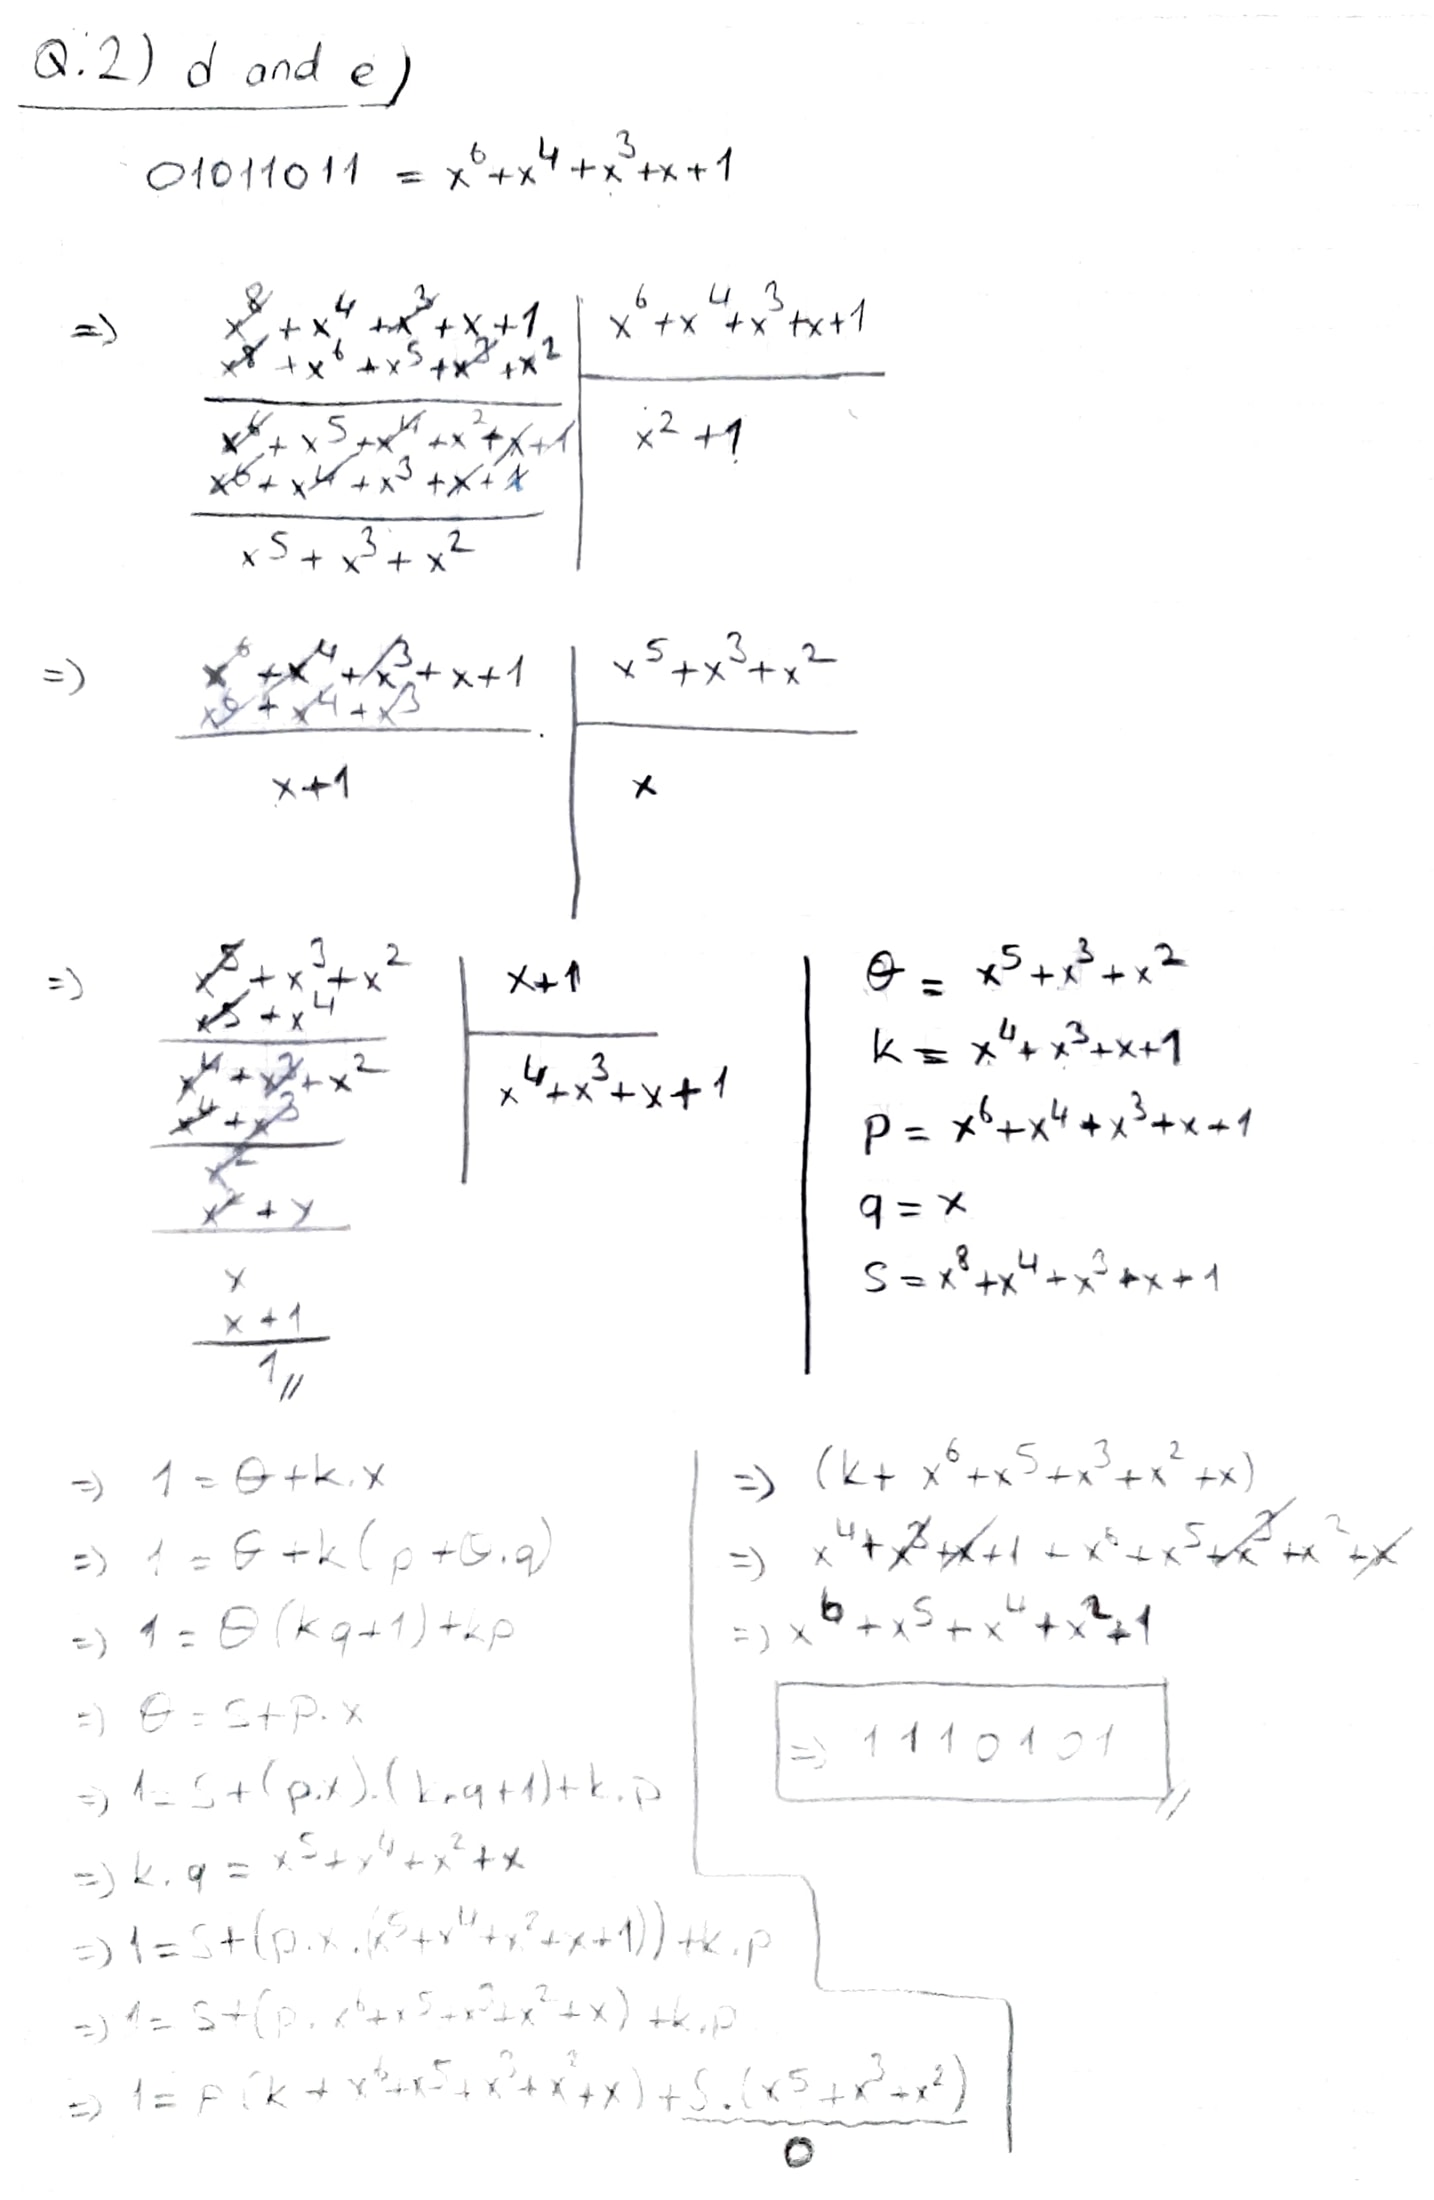 Q.2) d and e)
01011011 = x⁶+x⁴+x³+x+1
=) x⁸+x⁴+x³+x+1 | x⁶+x⁴+x³+x+1
x⁸+x⁶+x⁵+x³+x²
x⁶+x⁵+x⁴+x²+x+1 | x²+1
x⁶+x⁴+x³+x+1
x⁵+x³+x²
=) x⁶+x⁴+x³+x+1 | x⁵+x³+x²
x⁶+x⁴+x³
x+1 | x
=) x⁵+x³+x² | x+1
x⁵+x⁴
x⁴+x³+x² | x⁴+x³+x+1
x⁴+x³
x²
x²+x
x
x+1
1//
θ = x⁵+x³+x²
k = x⁴+x³+x+1
p = x⁶+x⁴+x³+x+1
q = x
S = x⁸+x⁴+x³+x+1
=) 1 = θ+k.x
=) 1 = θ+k(p+θ.q)
=) 1 = θ(kq+1)+kp
=) θ = S+p.x
=) 1=S+(p.x).(k.q+1)+k.p
=) k.q = x⁵+x⁴+x²+x
=) 1=S+(p.x.(x⁵+x⁴+x²+x+1))+k.p
=) 1= S+(p.x⁶+x⁵+x³+x²+x)+k.p
=) 1= p(k+x⁶+x⁵+x³+x²+x)+S.(x⁵+x³+x²)
0
=) (k+x⁶+x⁵+x³+x²+x)
=) x⁴+x³+x+1+x⁶+x⁵+x³+x²+x
=) x⁶+x⁵+x⁴+x²+1
=) 1110101
//